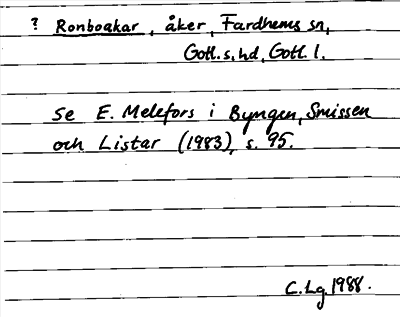 ? Ronboakar, åker, Fardhems sn,
Gotl. s. hd, Gotl. l.
Se E. Melefors i Byngen, Smissen
och Listar (1983), s. 95.
C. Lg 1988.